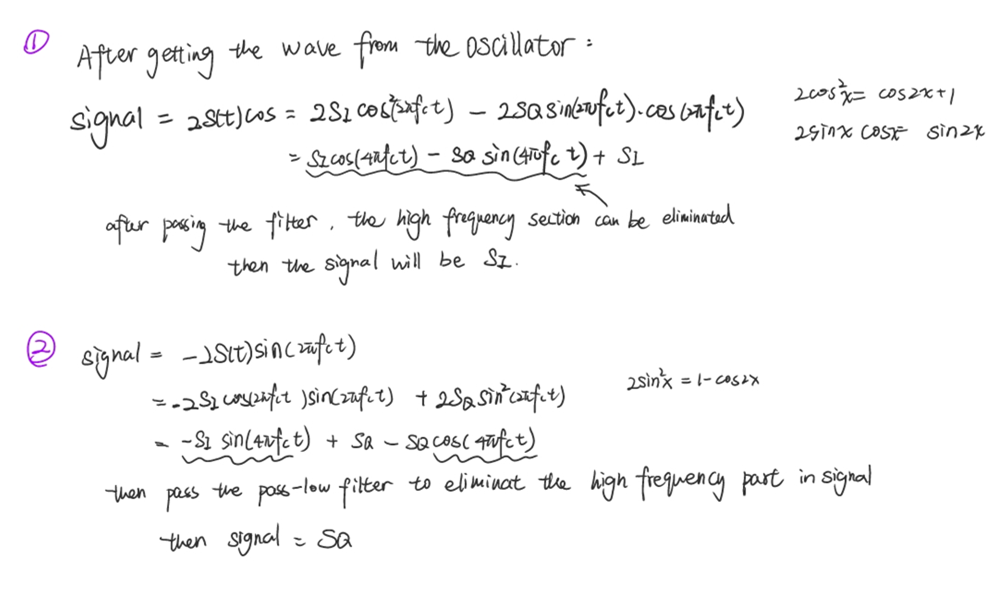 ① After getting the wave from the oscillator :
signal = 2S(t)cos = 2SI cos²(2πfct) - 2SQ sin(2πfct).cos(2πfct)
2cos²x = cos2x+1
2sinx cosx = sin2x
= SI cos(4πfct) - SQ sin(4πfct) + SI
after passing the filter, the high frequency section can be eliminated
then the signal will be SI.
② signal = -2S(t)sin(2πfct)
= -2SI cos(2πfct)sin(2πfct) + 2SQ sin²(2πfct)
2sin²x = 1-cos2x
= -SI sin(4πfct) + SQ - SQ cos(4πfct)
then pass the pass-low filter to eliminat the high frequency part in signal
then signal = SQ